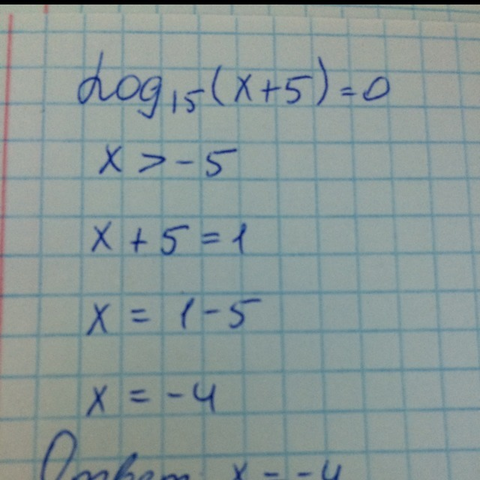 Log₁₅(x+5)=0
x > -5
x + 5 = 1
x = 1 - 5
x = -4
Ответ x = -4